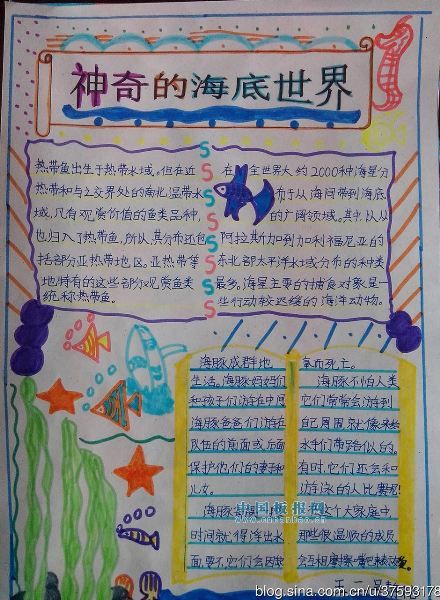 神奇的海底世界
热带鱼出生于热带水域。但在近
热带和与之交界处的南北温带水
域,凡有观赏价值的鱼类品种,
也归入了热带鱼,所以,其分布还包
括部分亚热带地区。亚热带等
地特有的这些部分观赏鱼类
统称热带鱼。
在全世界大约2000种海星分
布于从海间带到海底
的广阔领域。其中以从
阿拉斯加到加利福尼亚的
东北部太平洋水域分布的种类
最多。海星主要的捕食对象是一
些行动较迟缓的海洋动物。
海豚成群地
生活。海豚妈妈们
和孩子们游在中间
海豚爸爸们游在
队伍的前面或后面
保护他们的妻子和
儿女。
海豚
时间就得浮出水
面,要不,它们会因缺
氧而死亡。
海豚不怕人类
它们常常会游到
自己周围,就像来给
水手们带路似的。
有时,它们还会和
游泳的人比赛呢!
这个大家庭中
那些很温顺的成员
会互相摩擦
中国板报网
blog.sina.com.cn/u/37593178